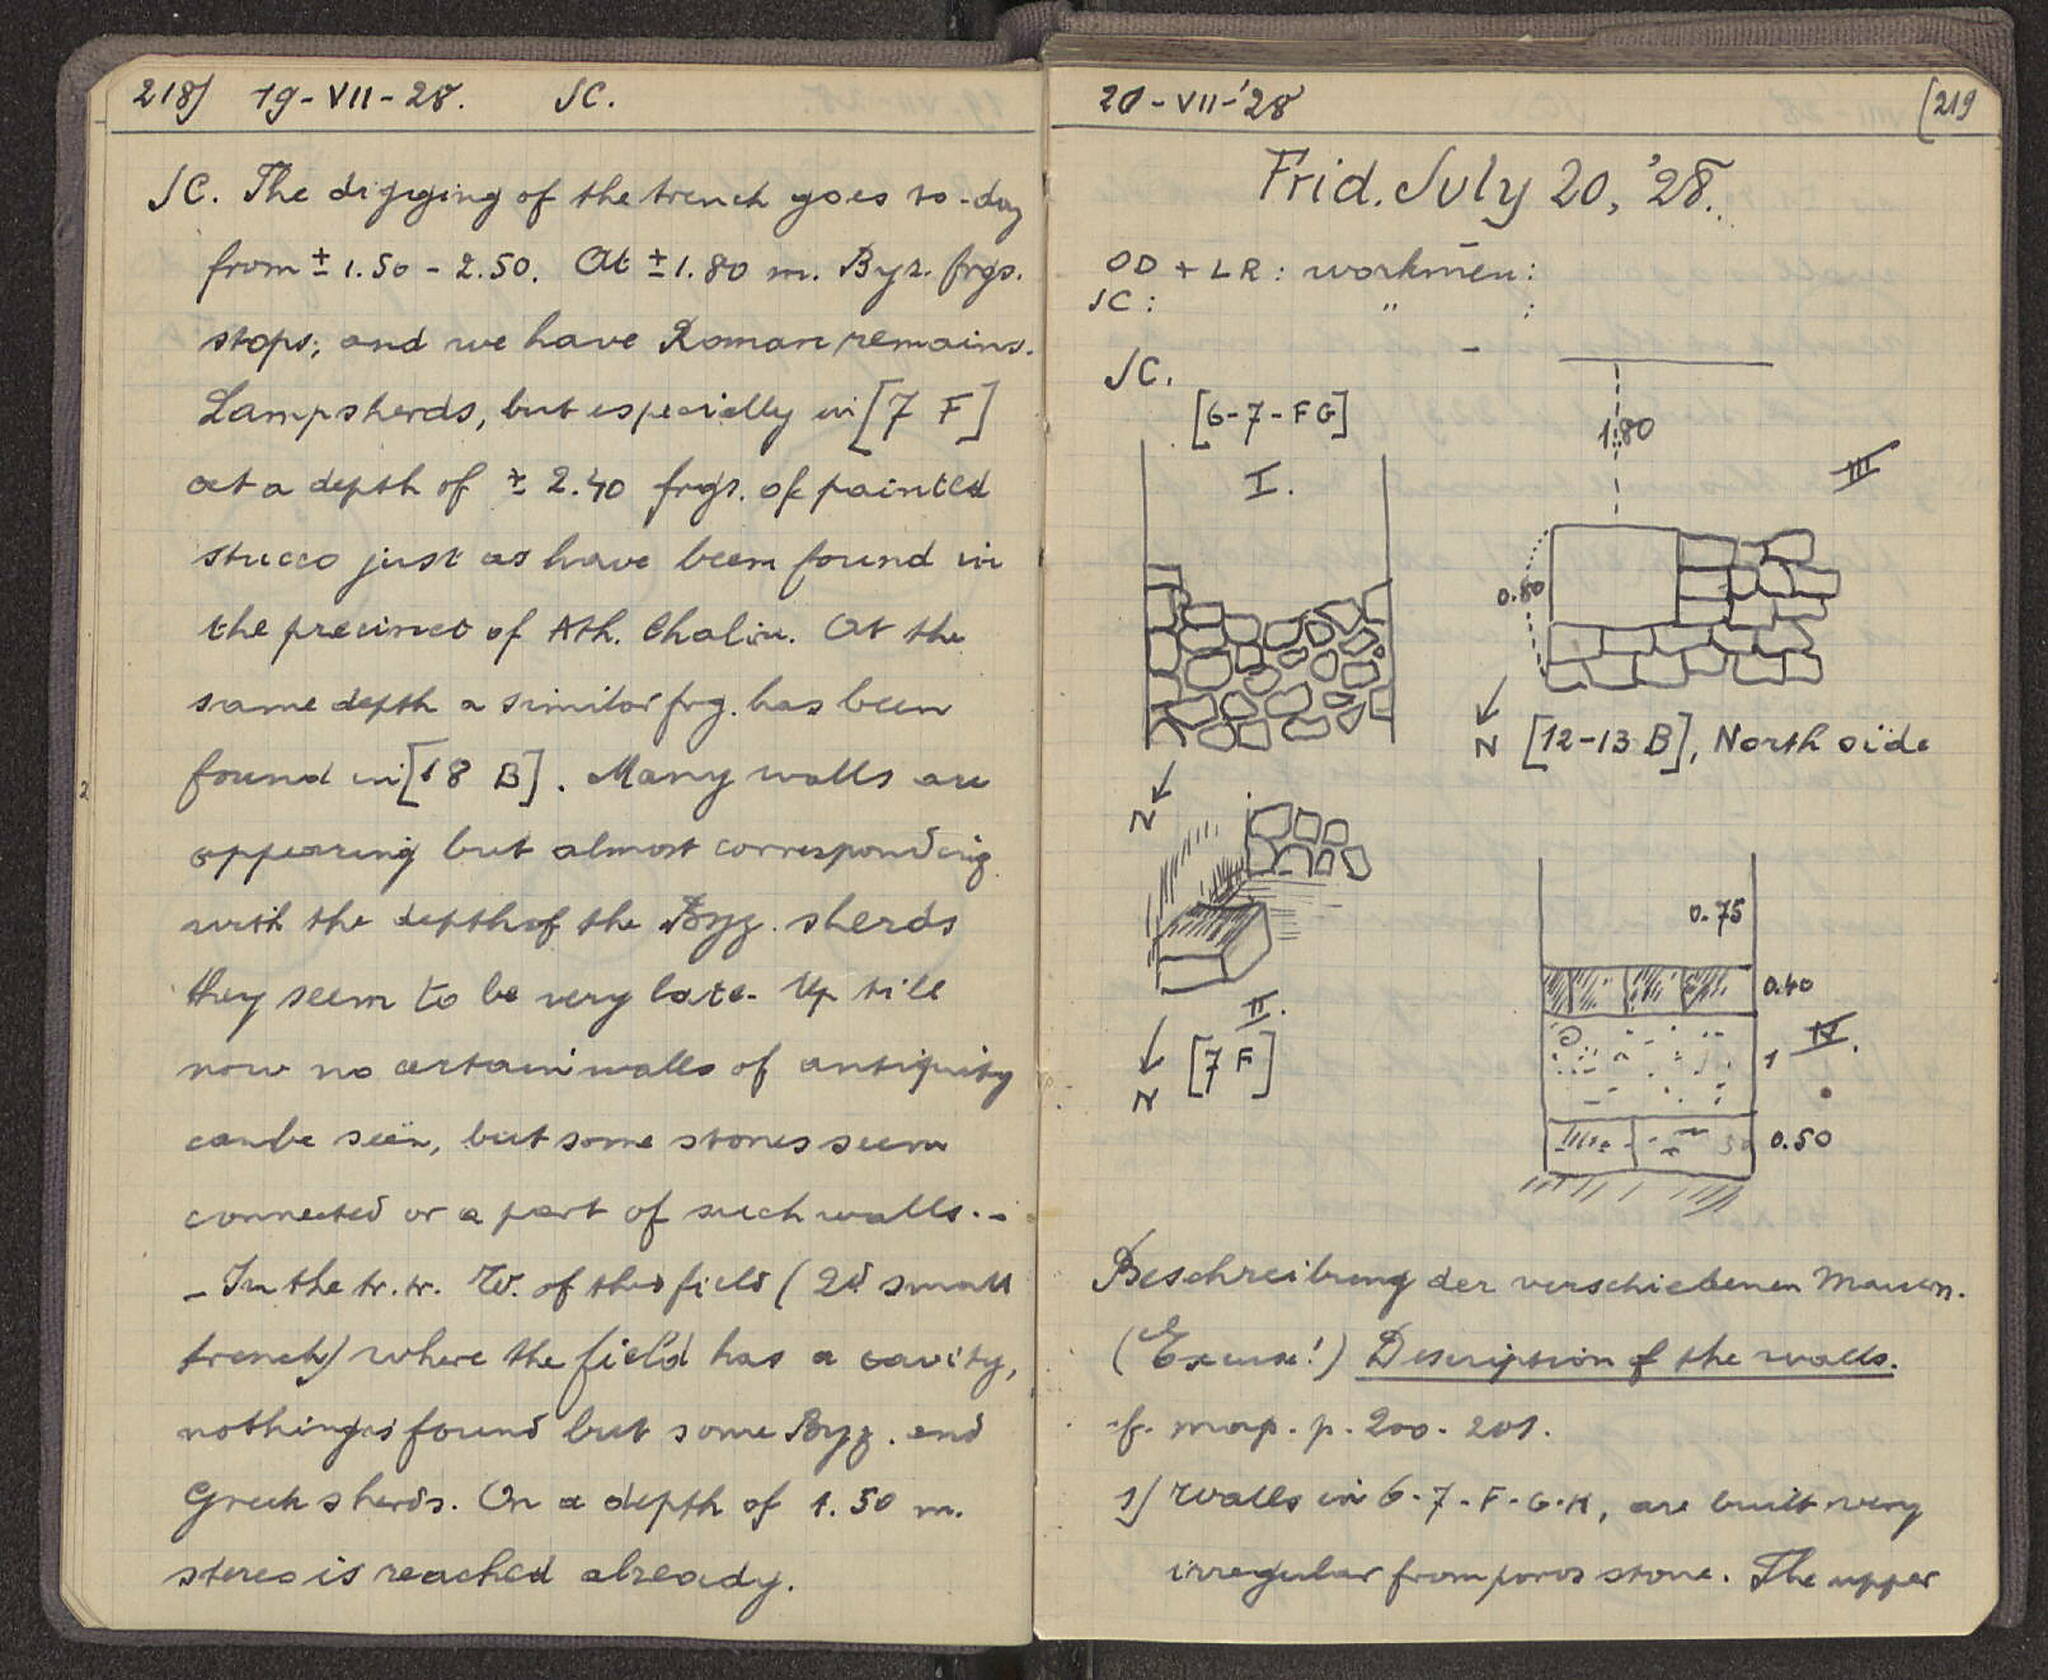 218) 19-VII-28. SC.
SC. The digging of the trench goes to-day
from ± 1.50 - 2.50. At ± 1.80 m. Byz. frgs.
stops; and we have Roman remains.
Lampsherds, but especially in [7 F]
at a depth of ± 2.40 frgs. of painted
stucco just as have been found in
the precinct of Ath. Chalin. At the
same depth a similar frg. has been
found in [18 B]. Many walls are
appearing but almost corresponding
with the depth of the Byz. sherds
they seem to be very late. Up till
now no certain walls of antiquity
can be seen, but some stones seem
connected or a part of such walls. -
- In the tr. tr. W. of the field (2d small
trench) where the field has a cavity,
nothing is found but some Byz. and
Greek sherds. On a depth of 1.50 m.
stereo is reached already.
2
20-VII-'28 [219
Frid. July 20, '28.
OD + LR: workmen:
SC: " :
-
SC.
[6-7-FG]
I.
N
1.80
III
0.80
N [12-13 B], North side
II.
N [7 F]
0.75
0.40
IV.
1
0.50
Beschreibung der verschiebenen Mauern.
(Excuse!) Description of the walls.
cf. map. p. 200-201.
1) Walls in 6-7-F-G-H, are built very
irregular from poros stone. The upper